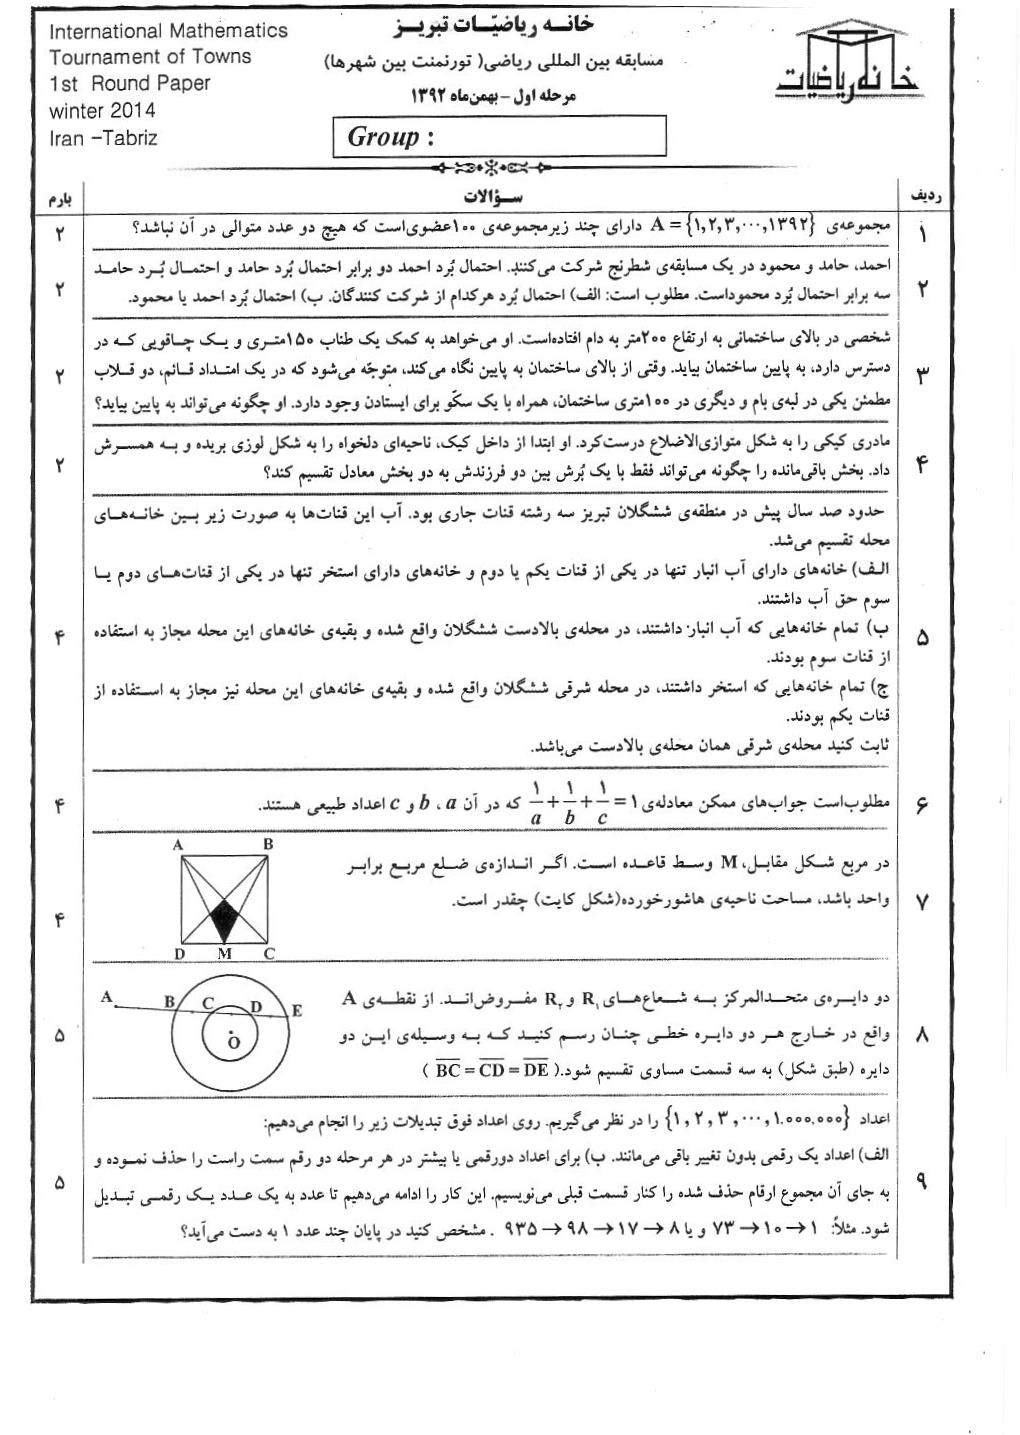 International Mathematics
Tournament of Towns
1st Round Paper
winter 2014
Iran –Tabriz
خانه ریاضیّات تبریز
مسابقه بین المللی ریاضی( تورنمنت بین شهرها)
مرحله اول – بهمن‌ماه ۱۳۹۲
Group :
خانه ریاضیات
ردیف سؤالات بارم
۱ مجموعه‌ی A = {۱,۲,۳,...,۱۳۹۲} دارای چند زیرمجموعه‌ی ۱۰۰عضوی‌است که هیچ دو عدد متوالی در آن نباشد؟ ۲
احمد، حامد و محمود در یک مسابقه‌ی شطرنج شرکت می‌کنند. احتمال بُرد احمد دو برابر احتمال بُرد حامد و احتمال بُرد حامد
۲ سه برابر احتمال بُرد محموداست. مطلوب است: الف) احتمال بُرد هرکدام از شرکت کنندگان. ب) احتمال بُرد احمد یا محمود. ۲
شخصی در بالای ساختمانی به ارتفاع ۲۰۰متر به دام افتاده‌است. او می‌خواهد به کمک یک طناب ۱۵۰متری و یک چاقویی که در
۳ دسترس دارد، به پایین ساختمان بیاید. وقتی از بالای ساختمان به پایین نگاه می‌کند، متوجّه می‌شود که در یک امتداد قائم، دو قلاب ۲
مطمئن یکی در لبه‌ی بام و دیگری در ۱۰۰متری ساختمان، همراه با یک سکّو برای ایستادن وجود دارد. او چگونه می‌تواند به پایین بیاید؟
مادری کیکی را به شکل متوازی‌الاضلاع درست‌کرد. او ابتدا از داخل کیک، ناحیه‌ای دلخواه را به شکل لوزی بریده و به همسرش
۴ داد. بخش باقی‌مانده را چگونه می‌تواند فقط با یک بُرش بین دو فرزندش به دو بخش معادل تقسیم کند؟ ۲
حدود صد سال پیش در منطقه‌ی ششگلان تبریز سه رشته قنات جاری بود. آب این قنات‌ها به صورت زیر بین خانه‌های
محله تقسیم می‌شد.
الف) خانه‌های دارای آب انبار تنها در یکی از قنات یکم یا دوم و خانه‌های دارای استخر تنها در یکی از قنات‌های دوم یا
سوم حق آب داشتند.
۵ ب) تمام خانه‌هایی که آب انبار داشتند، در محله‌ی بالادست ششگلان واقع شده و بقیه‌ی خانه‌های این محله مجاز به استفاده ۴
از قنات سوم بودند.
ج) تمام خانه‌هایی که استخر داشتند، در محله شرقی ششگلان واقع شده و بقیه‌ی خانه‌های این محله نیز مجاز به استفاده از
قنات یکم بودند.
ثابت کنید محله‌ی شرقی همان محله‌ی بالادست می‌باشد.
۶ مطلوب‌است جواب‌های ممکن معادله‌ی ۱/a + ۱/b + ۱/c = ۱ که در آن a ، b و c اعداد طبیعی هستند. ۴
در مربع شکل مقابل، M وسط قاعده است. اگر اندازه‌ی ضلع مربع برابر
۷ واحد باشد، مساحت ناحیه‌ی هاشورخورده(شکل کایت) چقدر است. ۴
A B
D M C
دو دایره‌ی متحدالمرکز به شعاع‌های R₁ و R₂ مفروض‌اند. از نقطه‌ی A
۸ واقع در خارج هر دو دایره خطی چنان رسم کنید که به وسیله‌ی این دو ۵
دایره (طبق شکل) به سه قسمت مساوی تقسیم شود.( B̅C̅ = C̅D̅ = D̅E̅ )
A B C D E
O
اعداد {۱,۲,۳,...,۱.۰۰۰.۰۰۰} را در نظر می‌گیریم. روی اعداد فوق تبدیلات زیر را انجام می‌دهیم:
الف) اعداد یک رقمی بدون تغییر باقی می‌مانند. ب) برای اعداد دورقمی یا بیشتر در هر مرحله دو رقم سمت راست را حذف نموده و
۹ به جای آن مجموع ارقام حذف شده را کنار قسمت قبلی می‌نویسیم. این کار را ادامه می‌دهیم تا عدد به یک عدد یک رقمی تبدیل ۵
شود. مثلاً: ۷۳ → ۱۰ → ۱ و یا ۹۳۵ → ۹۸ → ۱۷ → ۸ . مشخص کنید در پایان چند عدد ۱ به دست می‌آید؟